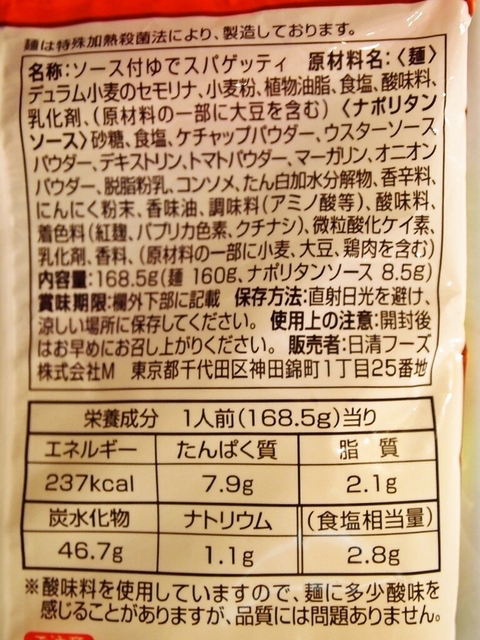 麺は特殊加熱殺菌法により、製造しております。
名称:ソース付ゆでスパゲッティ 原材料名:〈麺〉
デュラム小麦のセモリナ、小麦粉、植物油脂、食塩、酸味料、
乳化剤、(原材料の一部に大豆を含む)〈ナポリタン
ソース〉砂糖、食塩、ケチャップパウダー、ウスターソース
パウダー、デキストリン、トマトパウダー、マーガリン、オニオン
パウダー、脱脂粉乳、コンソメ、たん白加水分解物、香辛料、
にんにく粉末、香味油、調味料(アミノ酸等)、酸味料、
着色料(紅麹、パプリカ色素、クチナシ)、微粒酸化ケイ素、
乳化剤、香料、(原材料の一部に小麦、大豆、鶏肉を含む)
内容量:168.5g(麺 160g、ナポリタンソース 8.5g)
賞味期限:欄外下部に記載 保存方法:直射日光を避け、
涼しい場所に保存してください。 使用上の注意:開封後
はお早めにお召し上がりください。 販売者:日清フーズ
株式会社M 東京都千代田区神田錦町1丁目25番地
栄養成分 1人前(168.5g)当り
エネルギー たんぱく質 脂質
237kcal 7.9g 2.1g
炭水化物 ナトリウム (食塩相当量)
46.7g 1.1g 2.8g
※酸味料を使用していますので、麺に多少酸味を
感じることがありますが、品質には問題ありません。